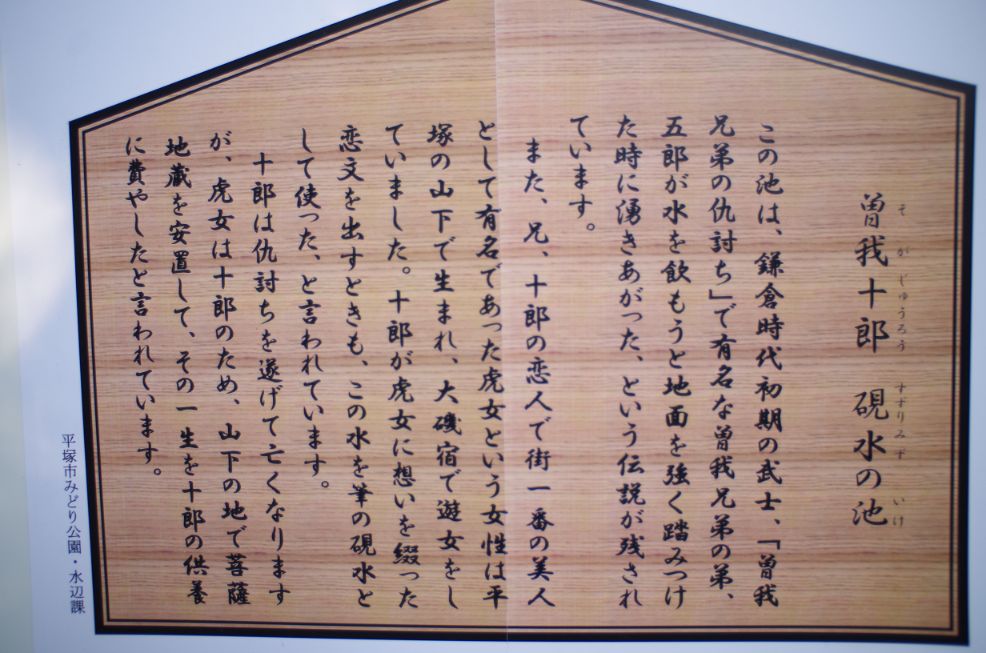 曽我十郎　硯水の池
そ が じゅうろう すずりみず いけ
この池は、鎌倉時代初期の武士、「曽我
兄弟の仇討ち」で有名な曽我兄弟の弟、
五郎が水を飲もうと地面を強く踏みつけ
た時に湧きあがった、という伝説が残され
ています。
また、兄、十郎の恋人で街一番の美人
として有名であった虎女という女性は平
塚の山下で生まれ、大磯宿で遊女をし
ていました。十郎が虎女に想いを綴った
恋文を出すときも、この水を筆の硯水と
して使った、と言われています。
十郎は仇討ちを遂げて亡くなります
が、虎女は十郎のため、山下の地で菩薩
地蔵を安置して、その一生を十郎の供養
に費やしたと言われています。
平塚市みどり公園・水辺課